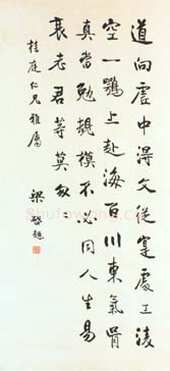 道向虛中得文從寔處工凌
空一鶚上赴海百川東氣骨
真當勉規模不必同人生易
衰老君等莫匆
桂庭仁兄雅屬
梁啟超